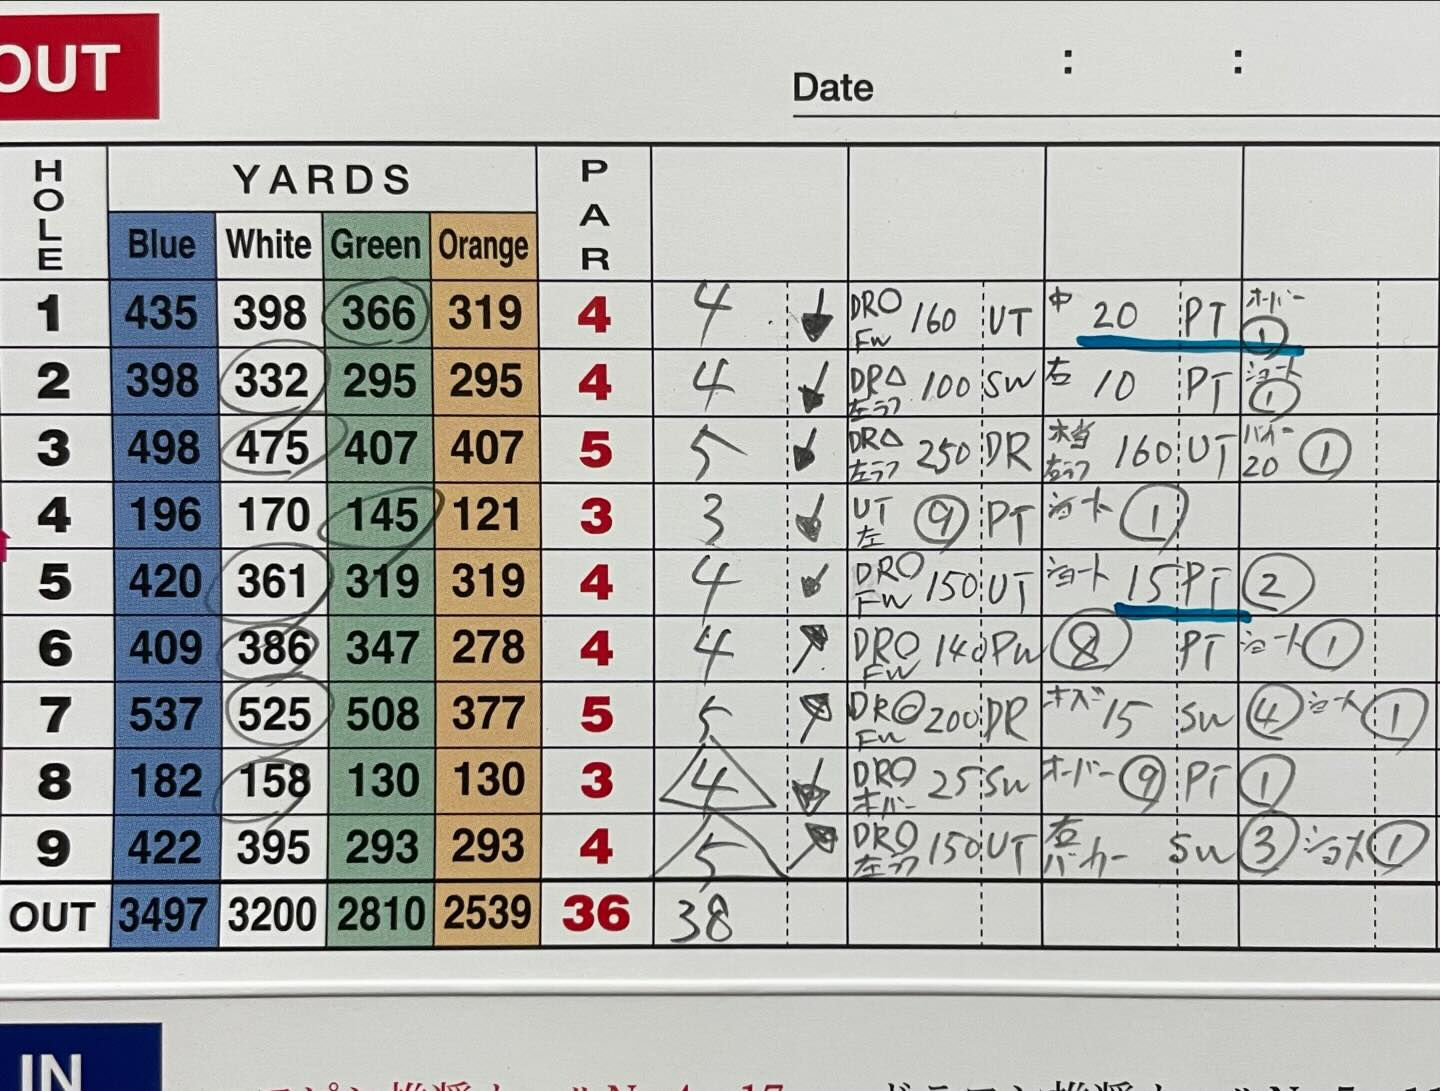 OUT
Date : :
HOLE YARDS PAR
Blue White Green Orange
1 435 398 366 319 4 4 DR○ FW 160 UT 中 20 PT オーバー ①
2 398 332 295 295 4 4 DR△ 左ラフ 100 SW 右 10 PT ショート ①
3 498 475 407 407 5 5 DR△ 左ラフ 250 DR 木当 右ラフ 160 UT バーナー 20 ①
4 196 170 145 121 3 3 UT 左 ⑨ PT ショート ①
5 420 361 319 319 4 4 DR○ FW 150 UT ショート 15 PT ②
6 409 386 347 278 4 4 DR○ FW 140 PW ⑧ PT ショート ①
7 537 525 508 377 5 5 DR◎ FW 200 DR 15 SW ④ ショート ①
8 182 158 130 130 3 4 DR○ オーバー 25 SW オーバー ⑨ PT ①
9 422 395 293 293 4 5 DR○ 左ラフ 150 UT 右バンカー SW ③ ①
OUT 3497 3200 2810 2539 36 38
IN